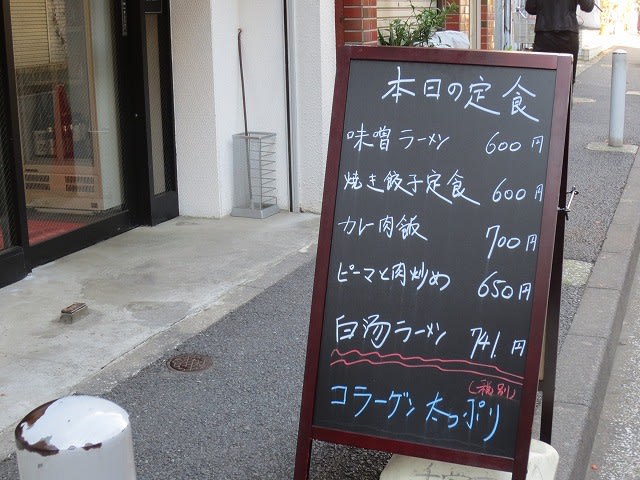 本日の定食
味噌ラーメン 600円
焼き餃子定食 600円
カレ肉飯 700円
ピーマと肉炒め 650円
白湯ラーメン 741.円
(税別)
コラーゲン 太っポリ